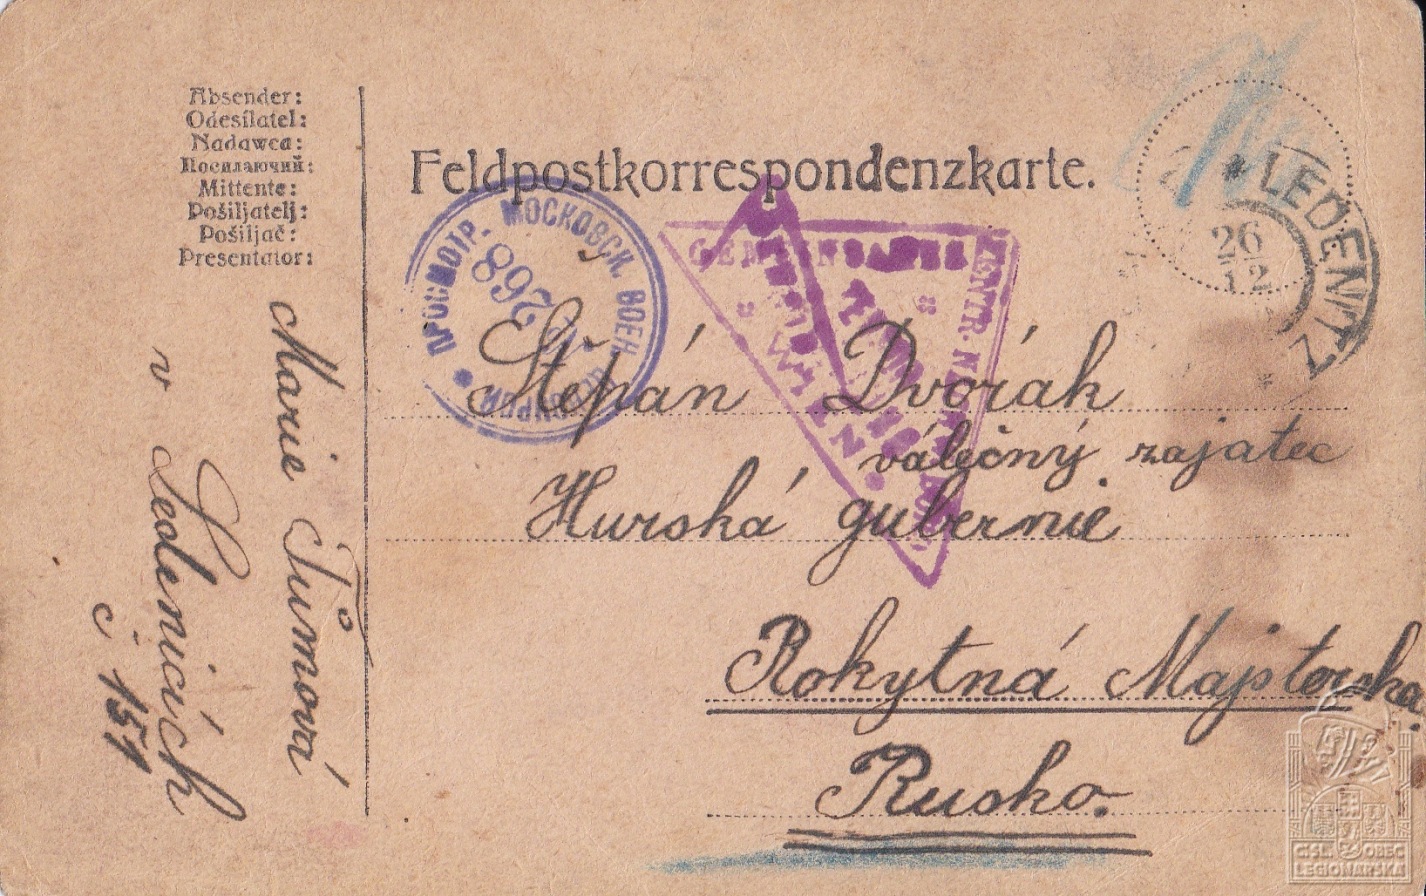 Absender:
Odesílatel:
Nadawca:
Посилаючий:
Mittente:
Pošiljatelj:
Pošiljač:
Presentator:
Marie Tůmová
v Ledenicích
č 151
Feldpostkorrespondenzkarte.
ПРОСМОТР. МОСКОВСК. ВОЕН.
268
LEDENITZ
26
12
Štěpán Dvořák
válečný zajatec
Hurská gubernie
Rokytná Majstorska
Rusko.
ČSL. OBEC
LEGIONÁŘSKÁ